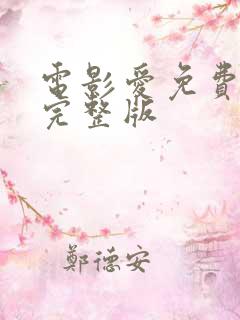 電影愛免費
完整版
鄭德安